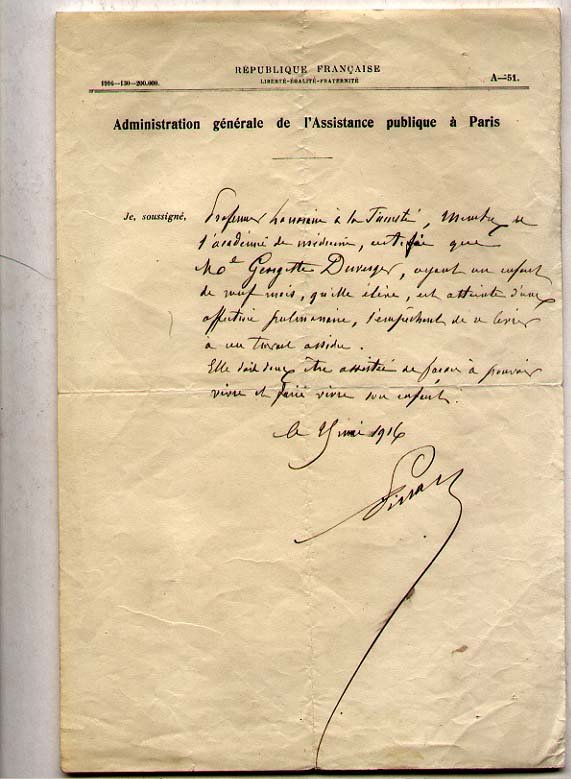 RÉPUBLIQUE FRANÇAISE
LIBERTÉ—ÉGALITÉ—FRATERNITÉ
1904—130—200.000.
A—51.
Administration générale de l'Assistance publique à Paris
Je, soussigné,
Professeur honoraire à la Faculté, Membre de
l'académie de médecine, certifie que
Me Georgette Duverger, ayant un enfant
de neuf mois, qu'elle élève, est atteinte d'une
affection pulmonaire, l'empêchant de se livrer
à un travail assidu.
Elle doit donc être assistée de façon à pouvoir
vivre et faire vivre son enfant.
le mai 1916
Pinard